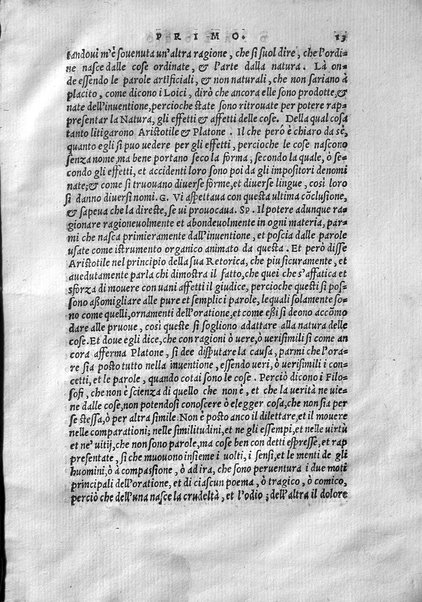 PRIMO. 13
tandoui m'è souenuta un'altra ragione, che si suol dire, che l'ordi=
ne nasce dalle cose ordinate, & l'arte dalla natura. Là on
de essendo le parole artificiali, & non naturali, che non sariano à
placito, come dicono i Loici, dirò che ancora elle sono prodotte, &
nate dell'inuentione, percioche state sono ritrouate per potere rap=
presentar la Natura, gli effetti & affetti delle cose. Della qual cosa
tanto litigarono Aristotile & Platone. Il che però è chiaro da sè,
quanto egli si puo uedere per gli effetti, percioche le cose nascono
senza nome, ma bene portano seco la forma, secondo la quale, ò se=
condo gli effetti, et accidenti loro sono poi da gli impositori denomi
nate; & come si truouano diuerse forme, et diuerse lingue, così loro
si danno diuersi nomi. G. Vi aspettaua con questa ultima cõclusione,
& sapeua che la direste, se ui prouocaua. SP. Il potere adunque ra=
gionare ragioneuolmente et abondeuolmente in ogni materia, par=
mi che nasca primieramente dall'inuentione, et poscia dalle parole
usate come istrumento organico animato da questa. Et però disse
Aristotile nel principio della sua Retorica, che piu sicuramente, et
auedutamente parla chi dimostra il fatto, che quei che s'affatica et
sforza di mouere con uani affetti il giudice, percioche questi si pos=
sono assomigliare alle pure et semplici parole, lequali solamente so=
no come quelli, ornamenti dell'oratione, et come essi si deono accõmo
dare alle pruoue, così queste si sogliono adattare alla natura delle
cose. Et doue egli dice, che con ragioni ò uere, ò uerisimili si come an
cora afferma Platone, si dee disputare la causa, parmi che l'ora=
re sia posto tutto nella inuentione, essendo ueri, ò uerisimili i con=
cetti, et le parole, quando cotai sono le cose. Perciò dicono i Filo=
sofi, che non è scienza di quello che non è, et che la uerità ne uie=
ne dalle cose, non potendosi conoscere ò elegger cosa, che non sia per
se stessa, ò per altra simile. Non è posto anco il dilettare, et il mouere
nelle comparationi; nelle similitudini, et ne gli essempi, et nelle uirtù
et ne' uitij, che non sono parole, ma cose ben con detti espresse, et rap
presentate, sì che muouono insieme i uolti, i sensi, et le menti de gli
huomini, ò à compassione, ò ad ira, che sono peruentura i due moti
principali dell'oratione, et di ciascun poema, ò tragico, ò comico,
perciò che dell'una nasce la crudeltà, et l'odio; dell'altra il dolore